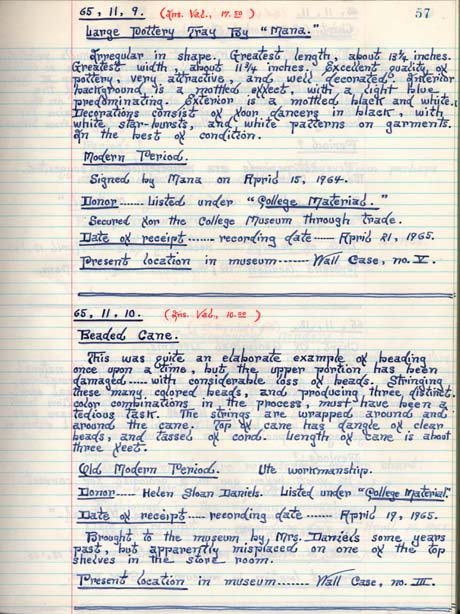 65, 11, 9. (Ins. Val., 17.50) 57
Large Pottery Tray By "Mana."
Irregular in shape. Greatest length, about 13¾ inches.
Greatest width, about 11¾ inches. Excellent quality of
pottery, very attractive, and well decorated. Interior
background is a mottled effect, with a light blue
predominating. Exterior is a mottled black and white.
Decorations consist of four dancers in black, with
white star-bursts, and white patterns on garments.
In the best of condition.
Modern Period.
Signed by Mana on April 15, 1964.
Donor ------- Listed under "College Material."
Secured for the College Museum through trade.
Date of receipt ------- recording date ------ April 21, 1965.
Present location in museum ------- Wall Case, no. V.
65, 11, 10. (Ins. Val., 10.00)
Beaded Cane.
This was quite an elaborate example of beading
once upon a time, but the upper portion has been
damaged ----- with considerable loss of beads. Stringing
these many colored beads, and producing three distinct
color combinations in the process, must have been a
tedious task. The strings are wrapped around and
around the cane. Top of cane has dangle of clear
beads, and tassel of cord. Length of cane is about
three feet.
Old Modern Period. Ute workmanship.
Donor ----- Helen Sloan Daniels. Listed under "College Material."
Date of receipt ----- recording date ------- April 19, 1965.
Brought to the museum by Mrs. Daniels some years
past, but apparently misplaced on one of the top
shelves in the store room.
Present location in museum ------- Wall Case, no. III.